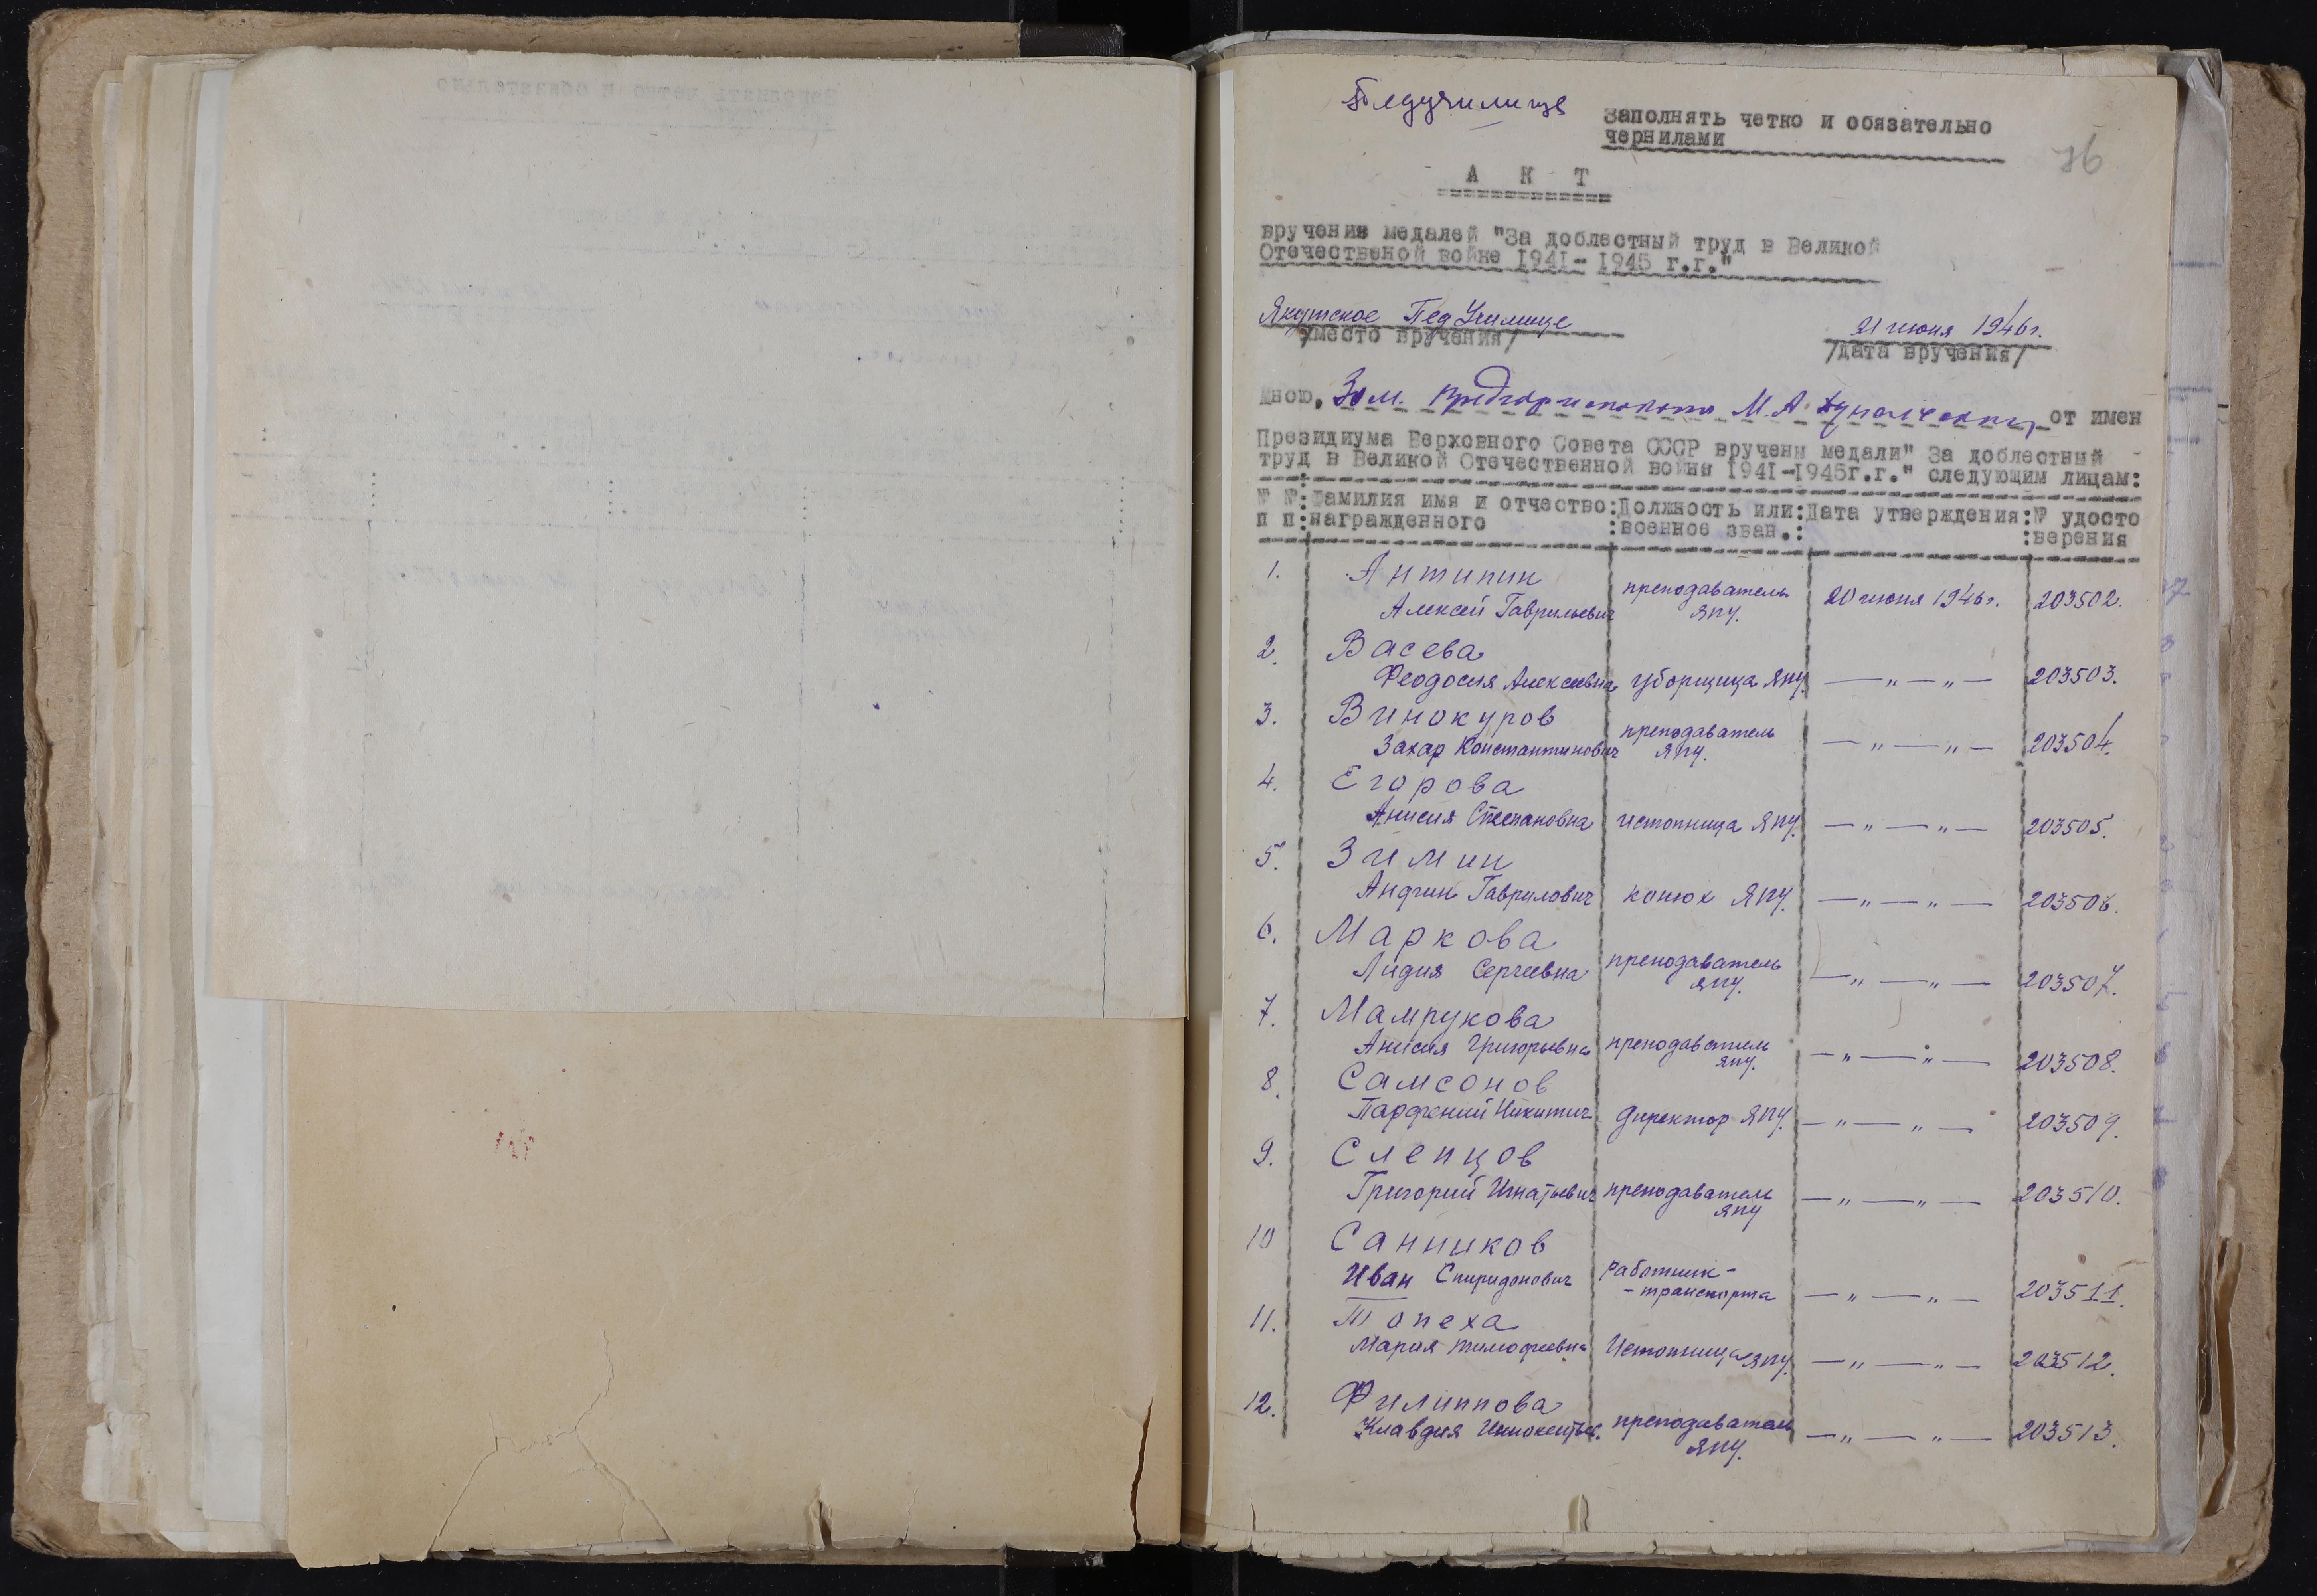 Педучилище
Заполнять четко и обязательно
чернилами
76
А К Т
вручения медалей "За доблестный труд в Великой
Отечественой войне 1941-1945 г.г."
Якутское ПедУчилище
/место вручения/
21 июня 1946г.
/дата вручения/
Мною, Зам. М. А. от имен
Президиума Верховного Совета СССР вручены медали" За доблестный
труд в Великой Отечественной война 1941-1945г.г." следующим лицам:
№ №:Фамилия имя и отчество:Должность или:Дата утверждения:№ удосто
п п:награжденного :военное зван.: :верения
1. Антипин
Алексей Гаврильевич преподаватель ЯПУ. 20 июня 1946г. 203502.
2. Васева
Феодосия Алексеевна уборщица ЯПУ. — " — " — 203503.
3. Винокуров
Захар Константинович преподаватель ЯПУ. — " — " — 203504.
4. Егорова
Анисия Степановна истопница ЯПУ. — " — " — 203505.
5. Зимин
Гаврилович конюх ЯПУ. — " — " — 203506.
6. Маркова
Лидия Сергеевна преподаватель ЯПУ. — " — " — 203507.
7. Мамрукова
Анисия Григорьевна преподаватель ЯПУ. — " — " — 203508.
8. Самсонов
Парфений Никитич директор ЯПУ. — " — " — 203509.
9. Слепцов
Григорий Игнатьевич преподаватель ЯПУ — " — " — 203510.
10 Санников
Иван Спиридонович работник- -транспорта — " — " — 203511.
11. Топеха
Мария Тимофеевна Истопница ЯПУ. — " — " — 203512.
12. Филиппова
Клавдия Иннокентьев. преподаватель ЯПУ. — " — " — 203513.